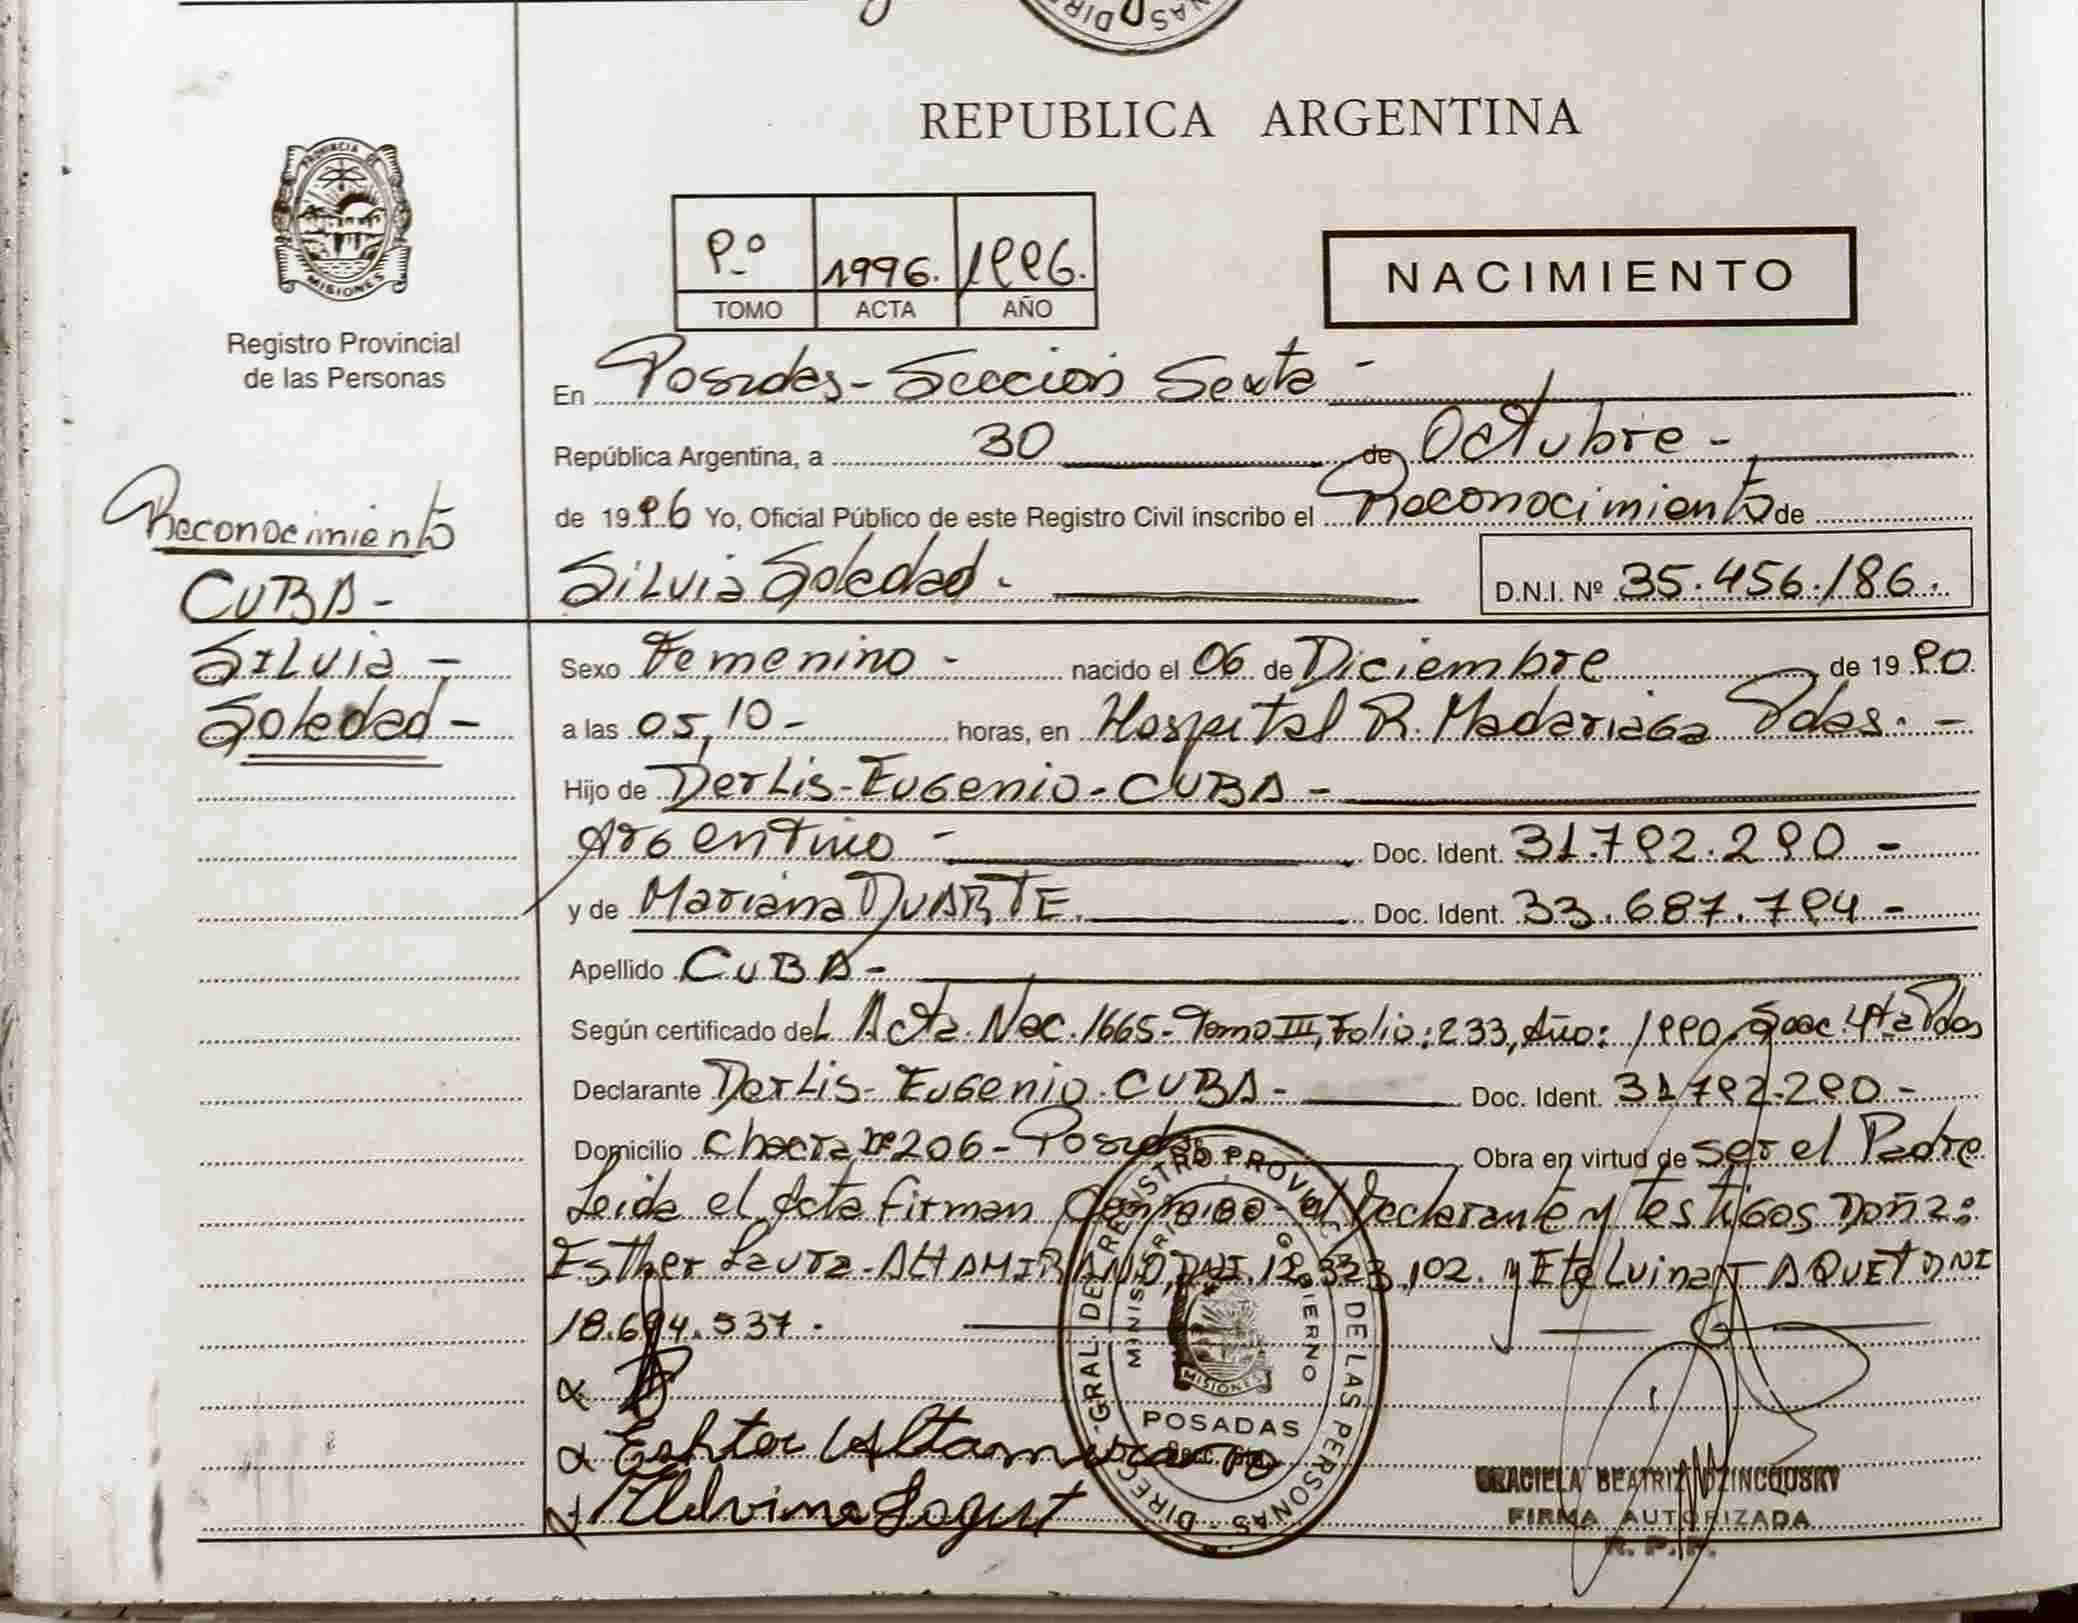 REPUBLICA ARGENTINA
PROVINCIA DE
MISIONES
Registro Provincial
de las Personas
9º 1996. 1996.
TOMO ACTA AÑO
NACIMIENTO
En Posadas - Sección Sexta -
República Argentina, a 30 de Octubre -
de 1996 Yo, Oficial Público de este Registro Civil inscribo el Reconocimiento de
Silvia Soledad - D.N.I. Nº 35.456.186.
Reconocimiento
CUBA -
Silvia -
Soledad -
Sexo Femenino - nacido el 06 de Diciembre de 1990
a las 05,10 - horas, en Hospital R. Madariaga Pdas. -
Hijo de Derlis - Eugenio - CUBA -
Argentino - Doc. Ident. 31.792.290 -
y de Mariana DUARTE. Doc. Ident. 33.687.794 -
Apellido CUBA -
Según certificado del Acta. Nac. 1665 - Tomo III, Folio: 233, Año: 1990. Secc. 4ta Pdas
Declarante Derlis - Eugenio CUBA - Doc. Ident. 31.792.290 -
Domicilio Chacra Nº 206 - Posadas Obra en virtud de ser el Padre
Leida el Acta firman Conmigo el Declarante y testigos Doña:
Esther Laura - ALTAMIRANO, DNI. 12.323.102. y Etelvina DNI
18.694.537.
Eshter Altamirano
DIREC. GRAL. DEL REGISTRO PROVINC. DE LAS PERSONAS
MINISTERIO DE GOBIERNO
MISIONES
POSADAS
GRACIELA BEATRIZ
FIRMA AUTORIZADA
R. P. P.